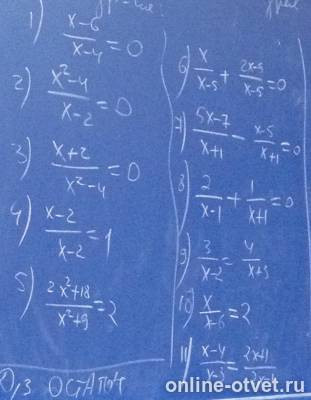 1) (x-6)/(x-4)=0
2) (x²-4)/(x-2)=0
3) (x+2)/(x²-4)=0
4) (x-2)/(x-2)=1
5) (2x²+18)/(x²+9)=2
6) x/(x-5)+(2x-9)/(x-5)=0
7) (5x-7)/(x+1)-(x-5)/(x+1)=0
8) 2/(x-1)+1/(x+1)=0
9) 3/(x-2)=4/(x+3)
10) x/(x+6)=2
11) (x-4)/(x-3)=(2x+1)/
online-otvet.ru